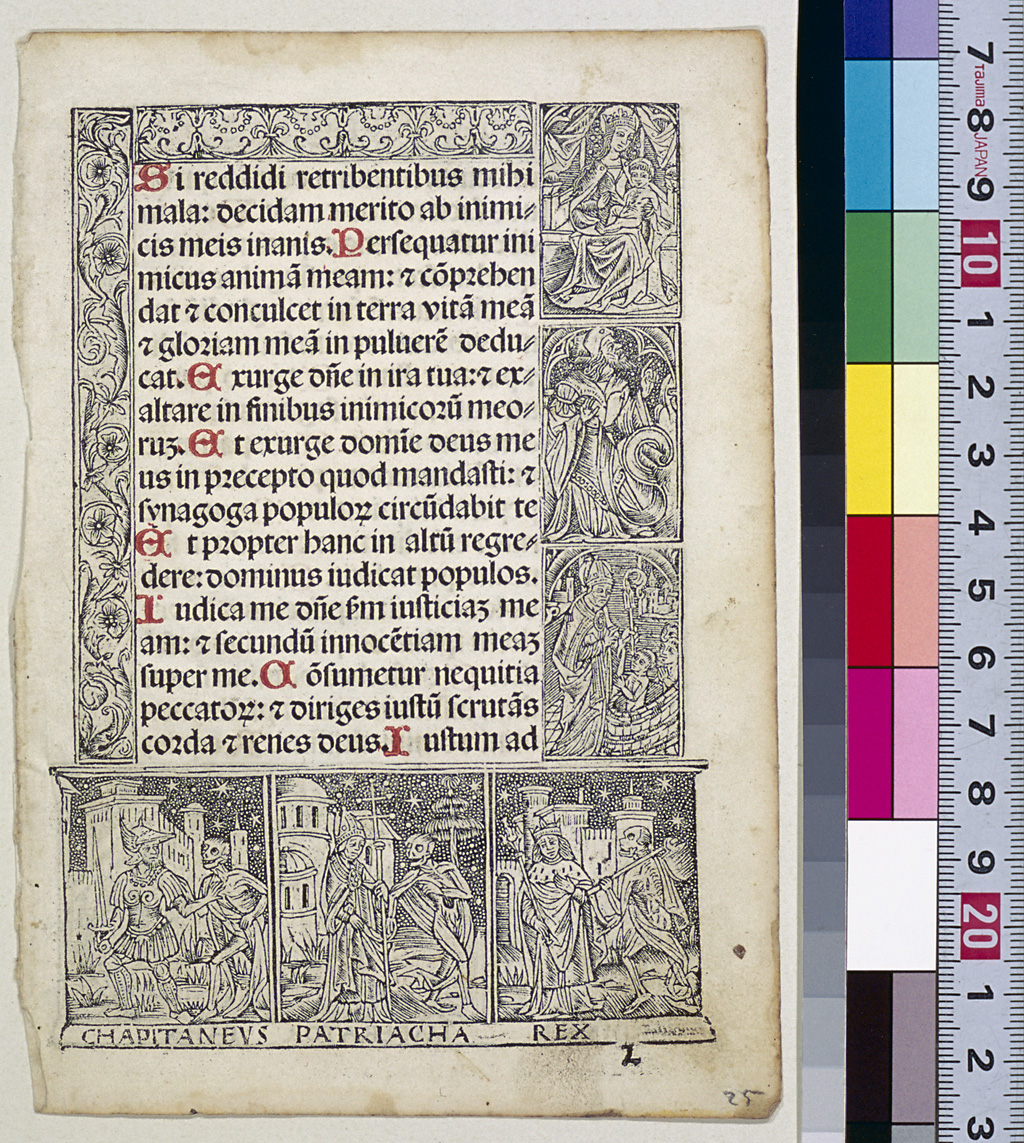 Si reddidi retribentibus mihi
mala: decidam merito ab inimi⸗
cis meis inanis. Persequatur ini
micus animã meam: ⁊ cõprehen
dat ⁊ conculcet in terra vitã meã
⁊ gloriam meã in puluerẽ dedu⸗
cat. Exurge dñe in ira tua: ⁊ ex⸗
altare in finibus inimicorũ meo⸗
ruꝫ. Et exurge domĩe deus me
us in precepto quod mandasti: ⁊
synagoga populoꝝ circũdabit te
Et propter hanc in altũ regre⸗
dere: dominus iudicat populos.
Iudica me dñe ẜm iusticiaꝫ me
am: ⁊ secundũ innocẽtiam meaꝫ
super me. Cõsumetur nequitia
peccatoꝝ: ⁊ diriges iustũ scrutãs
corda ⁊ renes deus. Iustum ad
CHAPITANEVS PATRIACHA REX
25
7 8 9 10 1 2 3 4 5 6 7 8 9 20 1 2 3
Tajima JAPAN